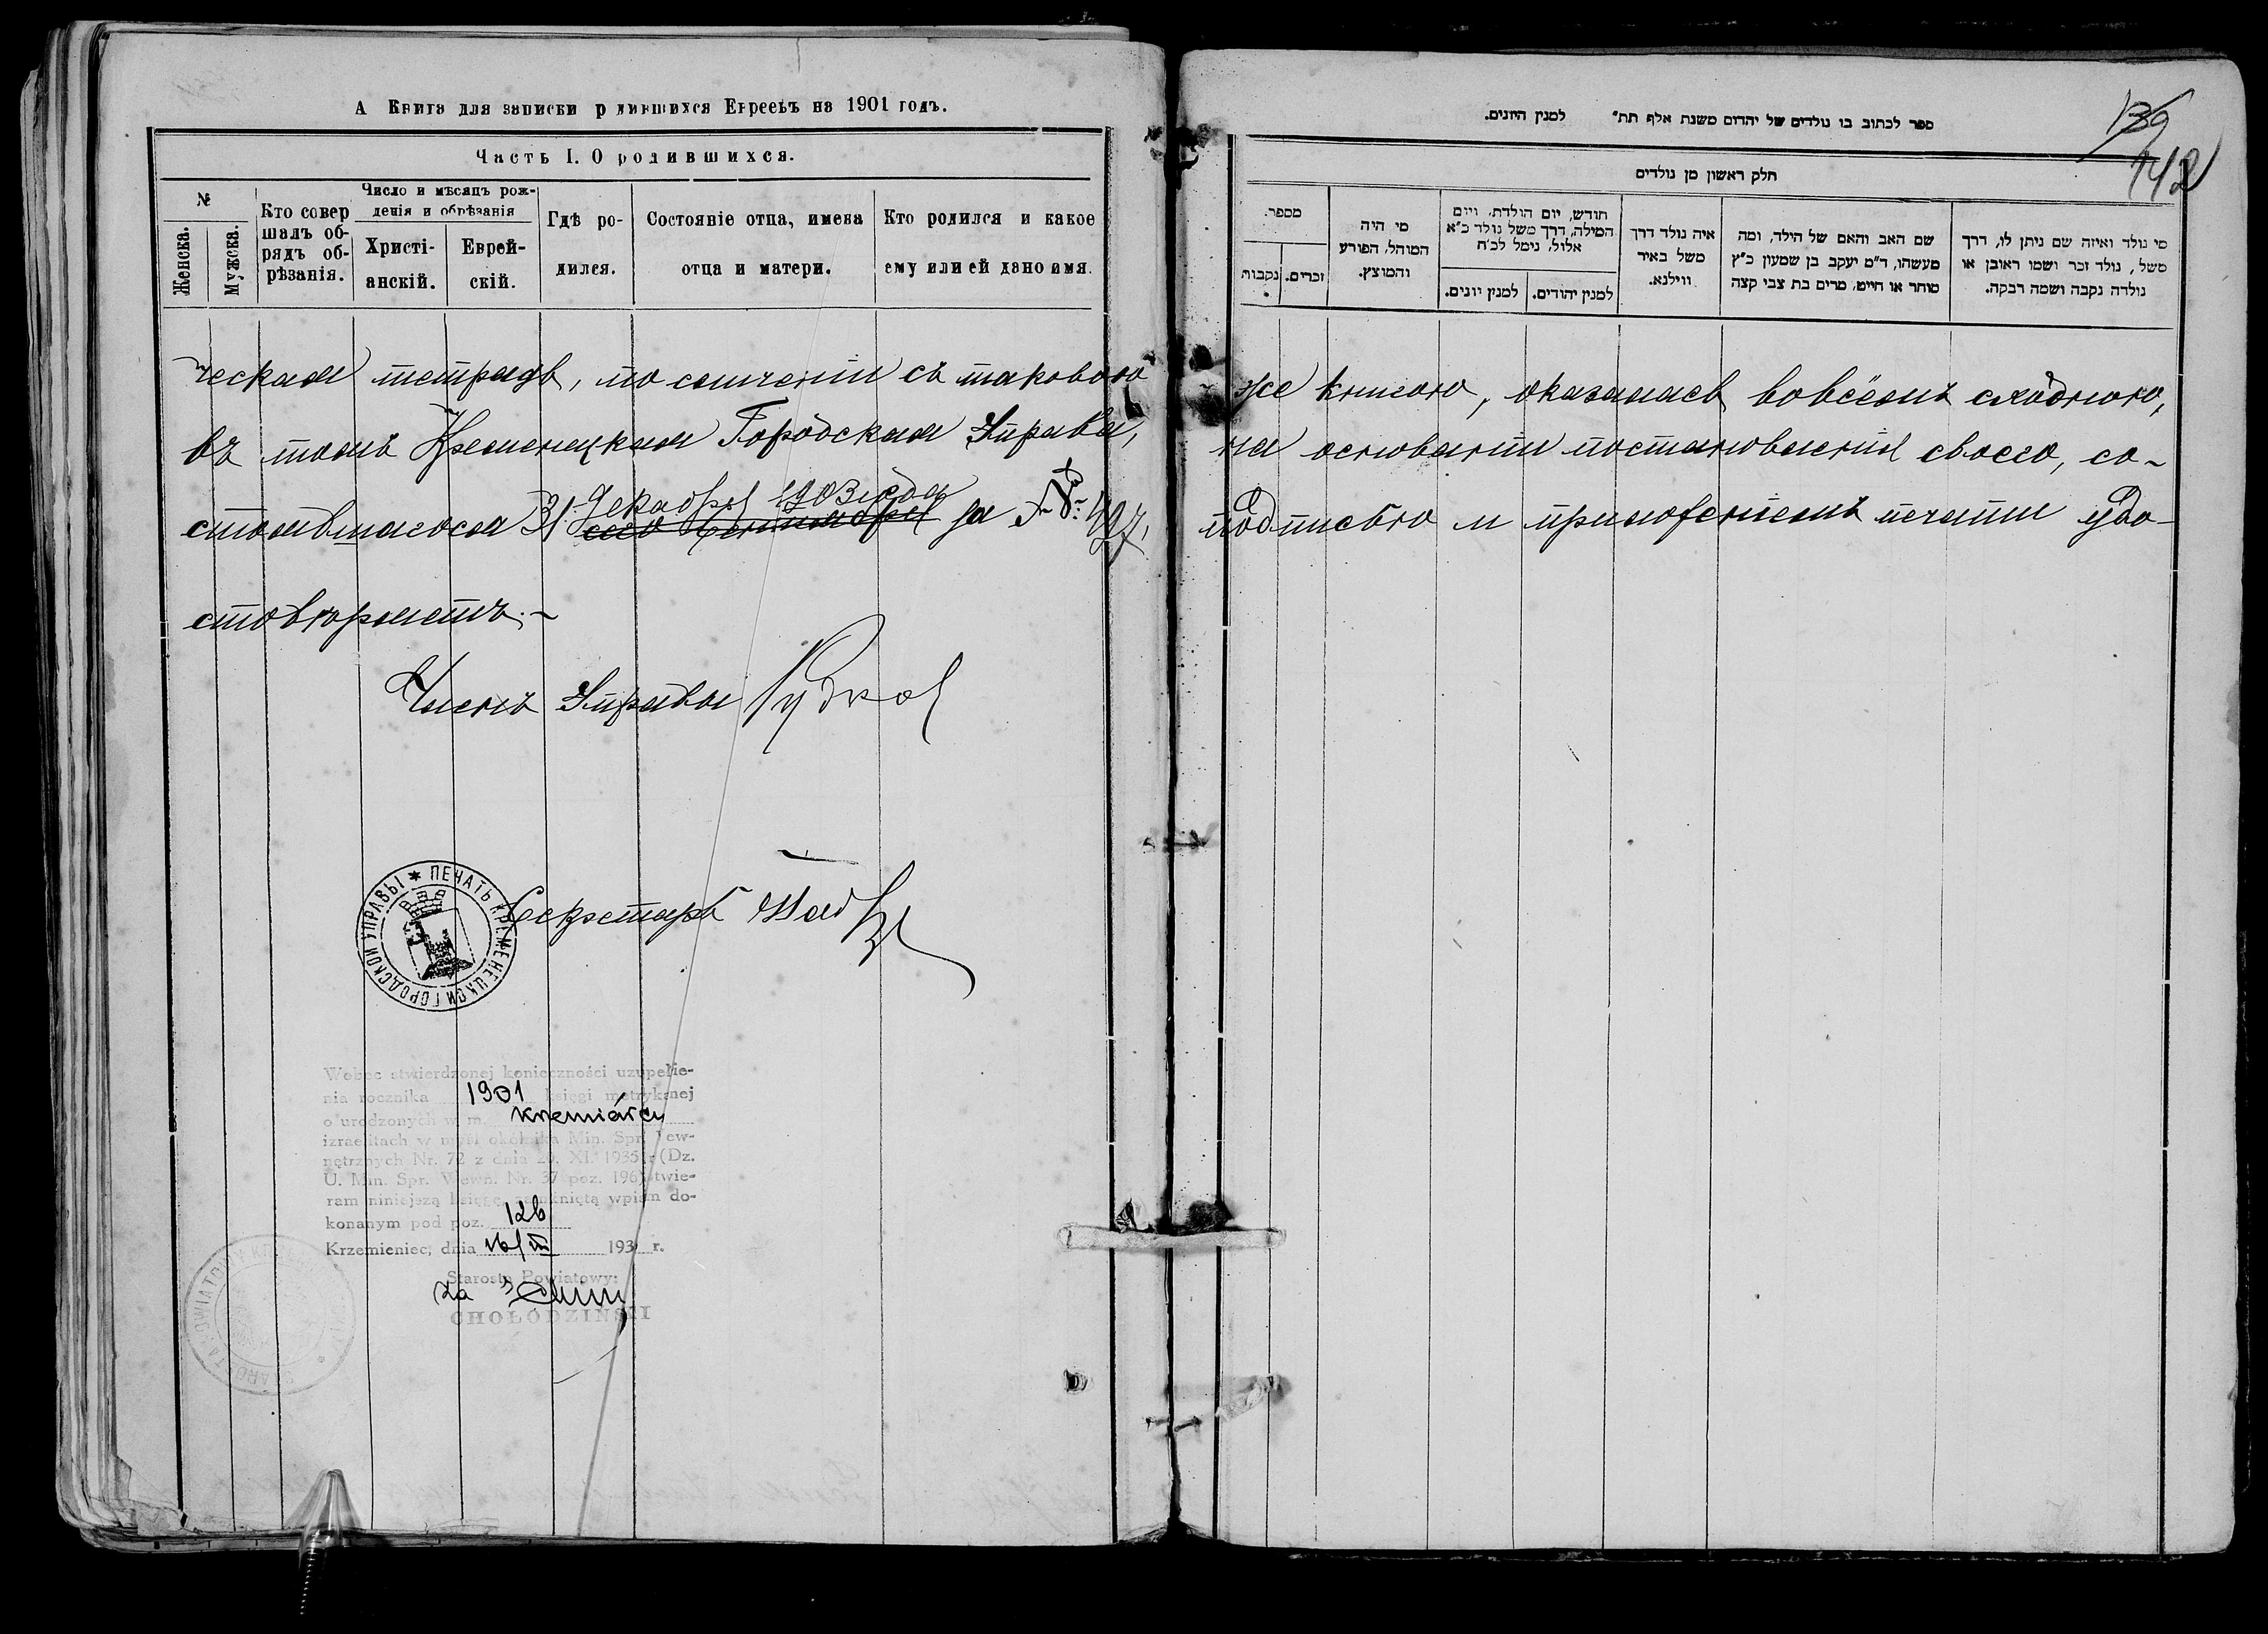 А Книга для записки р дившихся Евреевъ на 1901 годъ.
Часть I. О родившихся.
№
Женска.
Мужска.
Кто совер
шалъ об-
рядъ об-
рѣзанія.
Число и мѣсяцъ рож-
денія и обрѣзанія
Христі-
анскій.
Еврей-
скій.
Гдѣ ро-
дился.
Состояніе отца, имена
отца и матери.
Кто родился и какое
ему или ей дано имя.
ческая тетрадь, по сличеніи съ таковою
въ томъ Кременецкая Городская Управа,
стоявшагося 31 Декабря 1903 года за № 497,
стовѣряетъ.-
Членъ Управы
Секретарь
ПЕЧАТЬ КРЕМЕНЕЦКОЙ ГОРОДСКОЙ УПРАВЫ
Wobec stwierdzonej konieczności uzupełnie-
nia rocznika 1901 księgi metrykalnej
o urodzonych w m. Krzemieńcu
izraelitach w myśl okólnika Min. Spr. Wew-
nętrznych Nr. 72 z dnia XI. 1935 r. (Dz.
U. Min. Spr. Wewn. Nr. 37 poz. 196) otwie-
ram niniejszą księgę zamkniętą wpisem do-
konanym pod poz. 126
Krzemieniec, dnia 16/III 193 r.
Starosta Powiatowy:
za
CHOŁODZIŃSKI
139
142
ספר לכתוב בו נולדים של יהדום משנת אלף תת״ למנין היונים.
חלק ראשון מן נולדים
מספר.
זכרים.
נקבות
מי היה
המוהל, הפורע
והמוצץ.
חודש, יום הולדת, ויום
המילה, דרך משל נולד כ״א
אלול, נימל לכ״ח
למנין יהודים.
למנין יונים.
איה נולד דרך
משל באיר
ווילנא.
שם האב והאם של הילד, ומה
מעשהו, ד״מ יעקב בן שמעון כ״ץ
סוחר או חייט, מרים בת צבי קצה
מי נולד ואיזה שם ניתן לו, דרך
משל, נולד זכר ושמו ראובן או
נולדה נקבה ושמה רבקה.
же книгою, оказалась во всёмъ сходною,
на основаніи постановленія своего, со-
подписью и приложеніемъ печати удо-